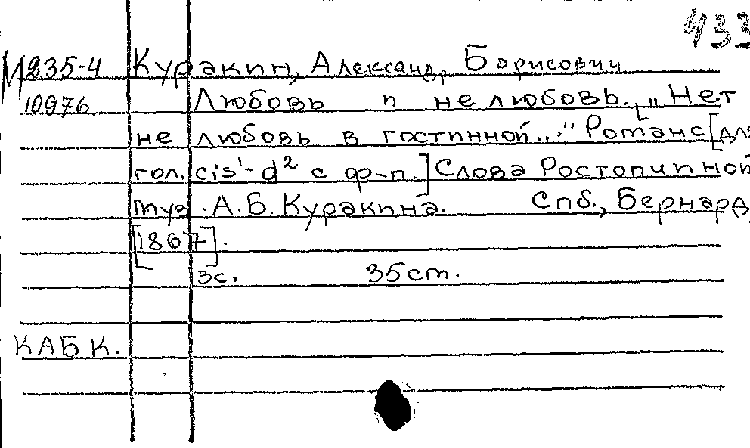 433
М235-4 Куракин, Александр Борисович
10976 Любовь и не любовь. [„Нет
не любовь в гостинной..." Романс [для
гол. cis'-d² с ф-п.] Слова Ростопчиной
муз. А.Б. Куракина. Спб., Бернард,
[1867].
3с. 35см.
КАБК.